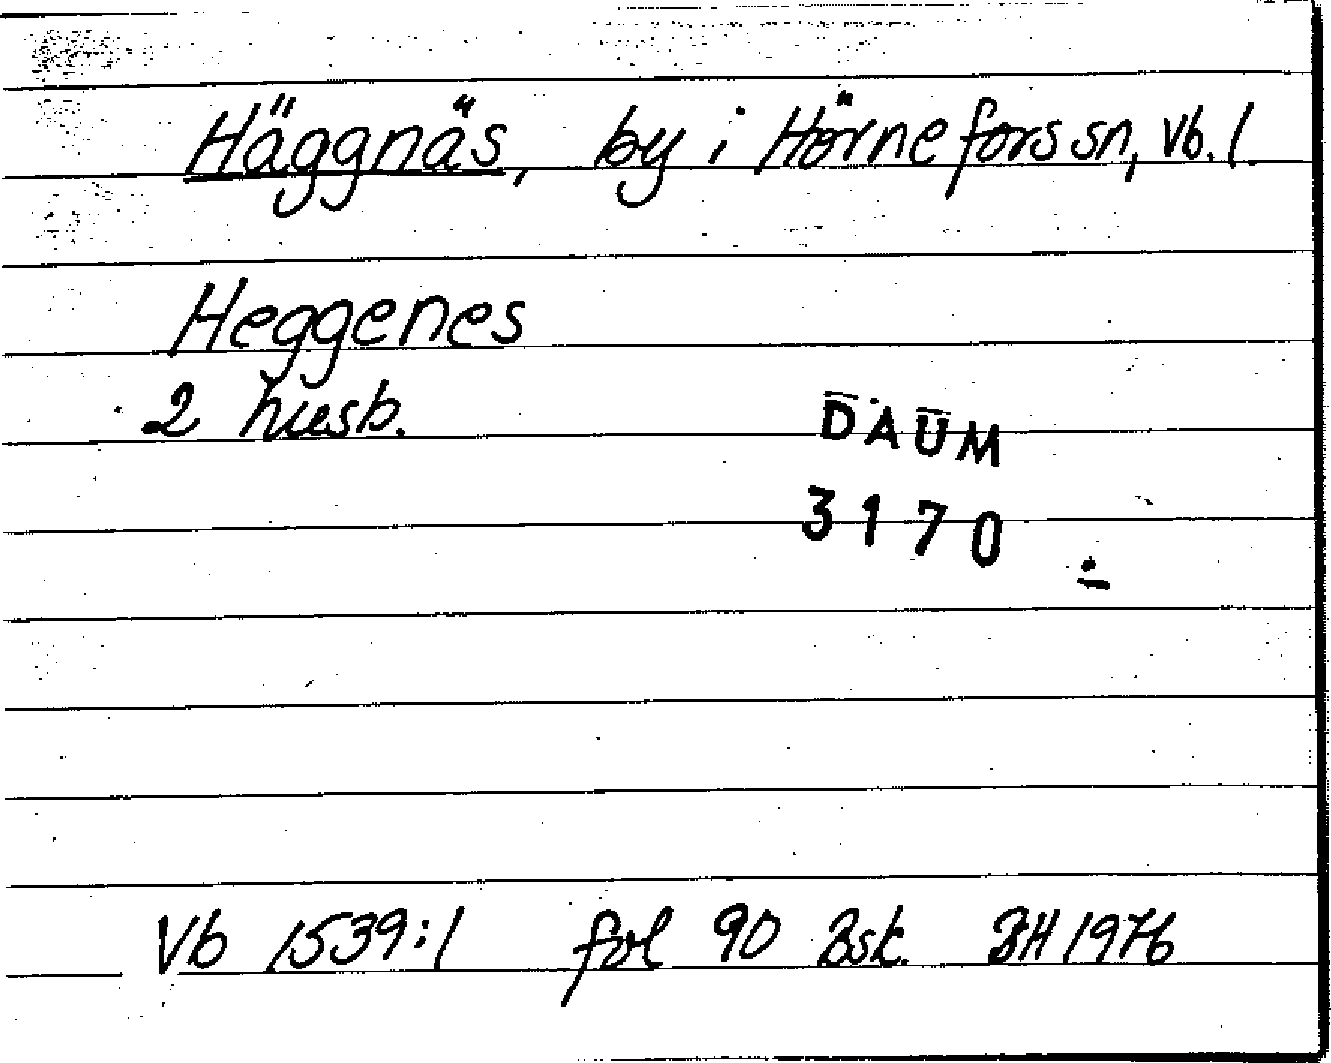 Häggnäs, by i Hörnefors sn, Vb. l.
Heggenes
2 husb.
DAUM
3170
Vb 1539:1 fol 90 Bsk. BH 1976